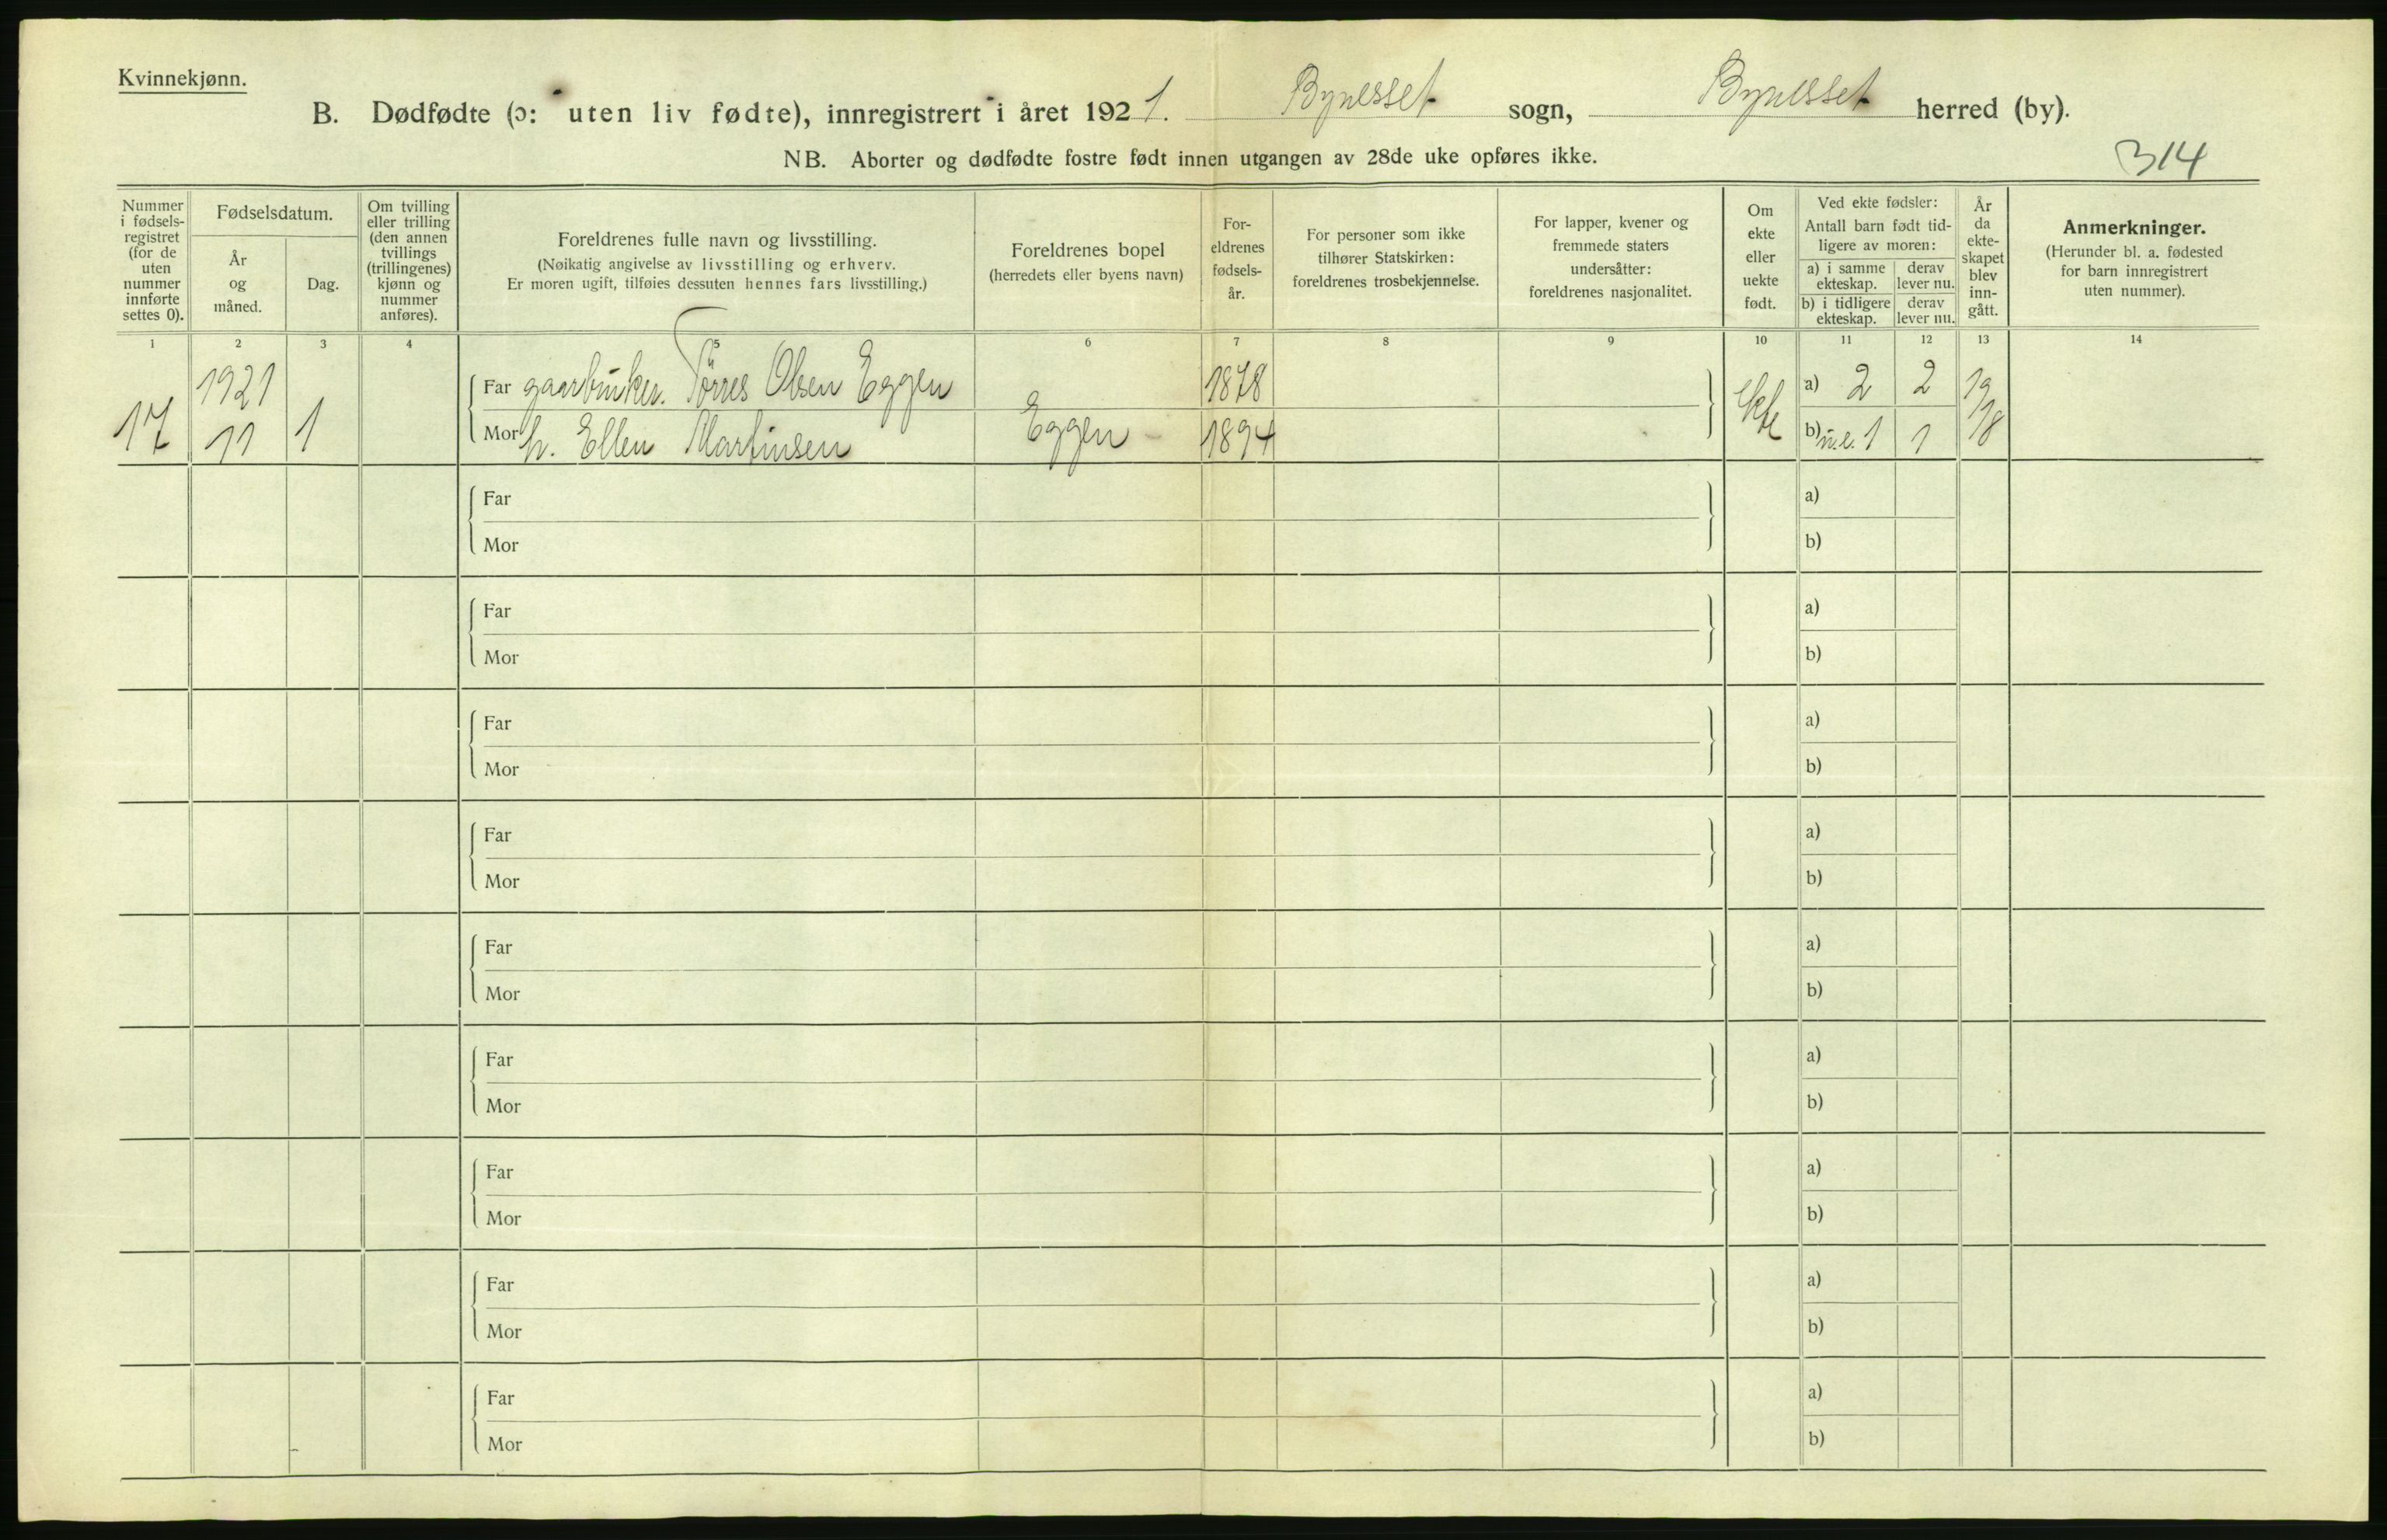 Kvinnekjønn.
B. Dødfødte (ɔ: uten liv fødte), innregistrert i året 1921. Bynesset sogn, Bynesset herred (by).
NB. Aborter og dødfødte fostre født innen utgangen av 28de uke opføres ikke.
314
Nummer
i fødsels-
registret
(for de
uten
nummer
innførte
settes 0).
Fødselsdatum.
År
og
måned.
Dag.
Om tvilling
eller trilling
(den annen
tvillings
(trillingenes)
kjønn og
nummer
anføres).
Foreldrenes fulle navn og livsstilling.
(Nøikatig angivelse av livsstilling og erhverv.
Er moren ugift, tilføies dessuten hennes fars livsstilling.)
Foreldrenes bopel
(herredets eller byens navn)
For-
eldrenes
fødsels-
år.
For personer som ikke
tilhører Statskirken:
foreldrenes trosbekjennelse.
For lapper, kvener og
fremmede staters
undersåtter:
foreldrenes nasjonalitet.
Om
ekte
eller
uekte
født.
Ved ekte fødsler:
Antall barn født tid-
ligere av moren:
a) i samme
ekteskap.
derav
lever nu.
b) i tidligere
ekteskap.
derav
lever nu.
År
da
ekte-
skapet
blev
inn-
gått.
Anmerkninger.
(Herunder bl. a. fødested
for barn innregistrert
uten nummer).
1 2 3 4 5 6 7 8 9 10 11 12 13 14
17 1921 11 1
Far gaarbruker. Törres Olsen Eggen 1878 Ekte a) 2 2 19
Mor h. Ellen Martinsen Eggen - 1894 b) u.e. 1 1 18
Far a)
Mor b)
Far a)
Mor b)
Far a)
Mor b)
Far a)
Mor b)
Far a)
Mor b)
Far a)
Mor b)
Far a)
Mor b)
Far a)
Mor b)
Far a)
Mor b)